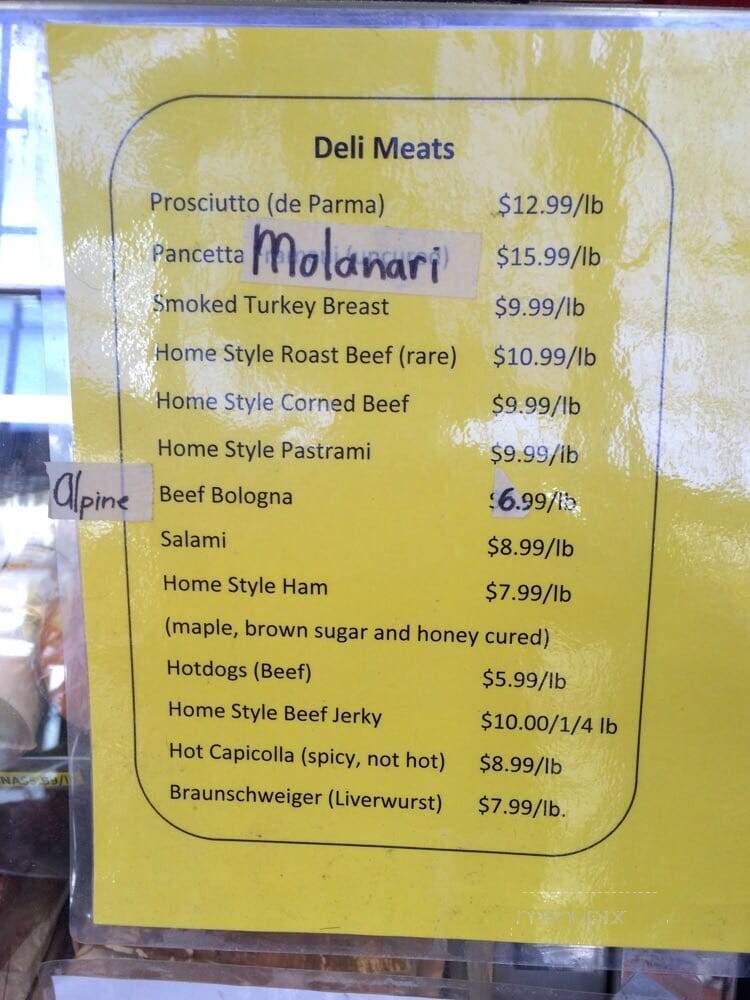 Deli Meats
Prosciutto (de Parma) $12.99/lb
Pancetta Molanari $15.99/lb
Smoked Turkey Breast $9.99/lb
Home Style Roast Beef (rare) $10.99/lb
Home Style Corned Beef $9.99/lb
Home Style Pastrami $9.99/lb
alpine Beef Bologna $6.99/lb
Salami $8.99/lb
Home Style Ham $7.99/lb
(maple, brown sugar and honey cured)
Hotdogs (Beef) $5.99/lb
Home Style Beef Jerky $10.00/1/4 lb
Hot Capicolla (spicy, not hot) $8.99/lb
Braunschweiger (Liverwurst) $7.99/lb.
menupix